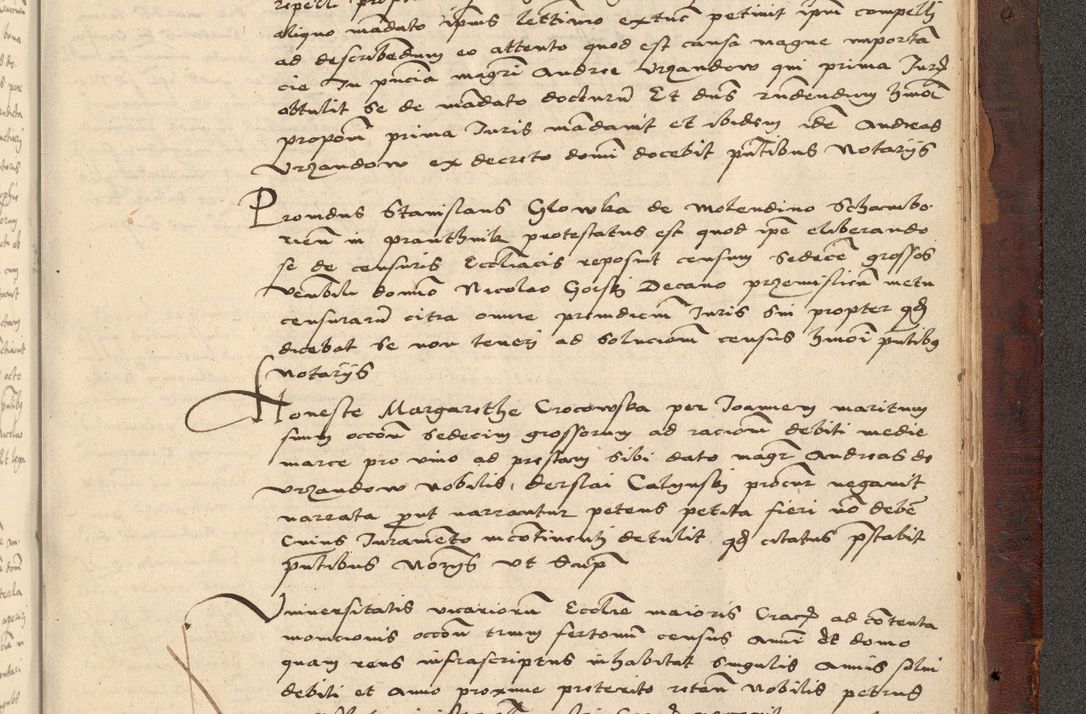 aliquo mandato ipius lectimo extunc petiuit ipm compelli
ad describendum eo attento quod est causa magne importan
cie In pncia magri Andree Urzandow qui prima Jur
obtulit se de mandato docturum Et dns rndendum hmoi
propom prima Juris mandauit et ibidem idem Andreas
Urzandow ex decreto domi docebit pntibus Notarijs
Prouidus Stanislaus Glowka de Molendino Schambo
rien in Pranthnik protestatus est quod ipe eliberando
se de censuris Ecclticis reposuit censum sedecem grossos
venbili domio Nicolao Gorski Decano przemislien metu
censurarum citra omne preiudicium Juris sui propter qd
dicebat se non teneri ad solucionem census hmoi pntibus
notarijs
Honeste Margarethe Crocowska per Joannem maritum
suum occom sedecim grossorum ad racionem debiti medie
marce pro vino ad prestam sibi dato magr Andreas de
Urzandow Nobilis Derslai Calynski procur negauit
narrata prout narrantur petens petita fieri non debere
Cuius Juramento incontinenti detulit qd citatus pstabit
pntibus Norijs vt supra
Vniuersitatis vicariorum Ecclie maioris Crac ad contenta
monicionis occom trium fertonum census Anni de domo
quam reus infrascriptus inhabitat singulis Annis solui
debiti et Anno proxime preterito reten Nobilis petrus